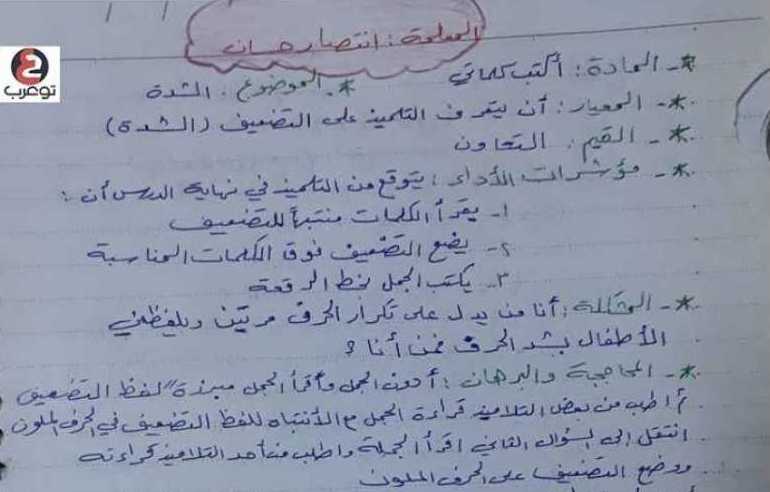 المعلمة : انتصار حسان
توعرب
*- المادة : أكتب كلماتي *- الموضوع : الشدة
*- المعيار : أن يتعرف التلميذ على التضعيف (الشدة)
*- القيم : التعاون
*- مؤشرات الأداء : يتوقع من التلميذ في نهاية الدرس أن :
١- يقرأ الكلمات منتبهاً للتضعيف
٢- يضع التضعيف فوق الكلمات المناسبة
٣- يكتب الجمل بخط الرقعة
*- المشكلة : أنا من يدل على تكرار الحرف مرتين ويلفظني
الأطفال بشد الحرف فمن أنا ؟
*- المحاججة والبرهان : أدون الجمل وأقرأ الجمل مبرزة "لفظ التضعيف
ثم اطلب من بعض التلاميذ قراءة الجمل مع الأنتباه للفظ التضعيف في الحرف الملون
انتقل إلى السؤال الثاني اقرأ الجملة واطلب من أحد التلاميذ قراءته
ووضع التضعيف على الحرف الملون